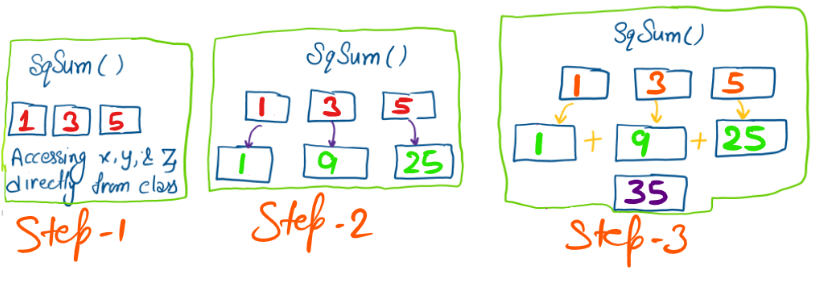 SqSum()
1 3 5
Accessing x, y, & Z
directly from class
Step-1
SqSum()
1 3 5
1 9 25
Step-2
SqSum()
1 3 5
1 + 9 + 25
35
Step-3